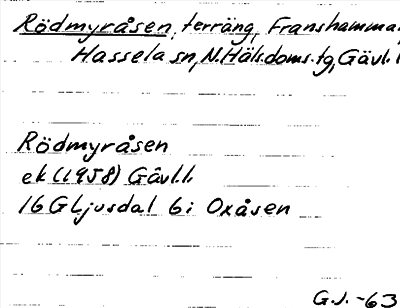 Rödmyråsen, terräng, Franshammar,
Hassela sn, N. Häls. doms. tg, Gävl. l
Rödmyråsen
ek (1958) Gävl. l.
16G Ljusdal 6i Oxåsen
G.J. -63